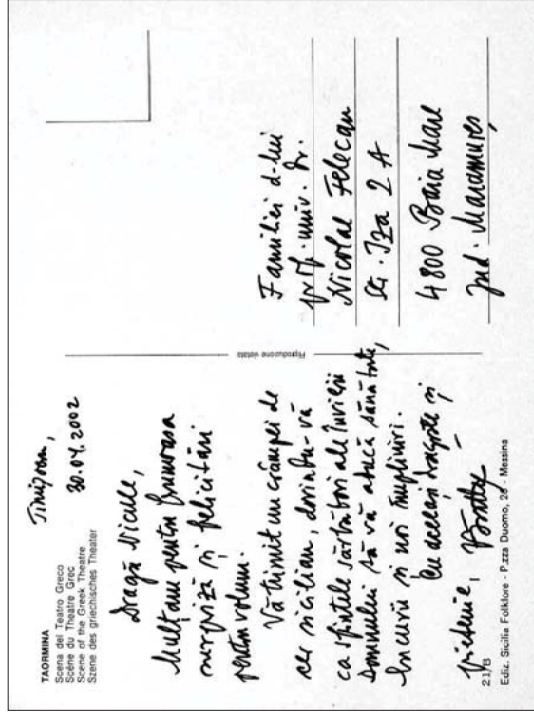 TAORMINA
Scena del Teatro Greco
Scène du Theatre Grec
Scene of the Greek Theatre
Szene des griechisches Theater
Timișoara,
30.04.2002
Dragă Nicule,
Mulțam pentru frumoasa
surpriză și felicitări
pentru volum.
Vă trimit un crâmpei de
cer sicilian, dorindu-vă
ca sfintele sărbători ale Învierii
Domnului să vă aducă sănătate,
bucurii și noi împliniri.
Cu aceeași dragoste și
prietenie,
21/B
Ediz. Sicilia Folklore - P.zza Duomo, 26 - Messina
Riproduzione vietata
Familiei d-lui
prof. univ. Dr.
Nicolae Felecan
Str. Iza 2 A
4800 Baia Mare
Jud. Maramureș